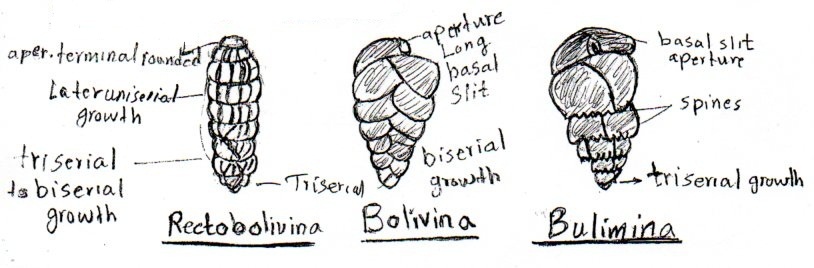 aper. terminal rounded
Later uniserial
growth
triserial
to biserial
growth
Triserial
Rectobolivina
aperture
Long
basal
slit
biserial
growth
Bolivina
basal slit
aperture
spines
triserial growth
Bulimina